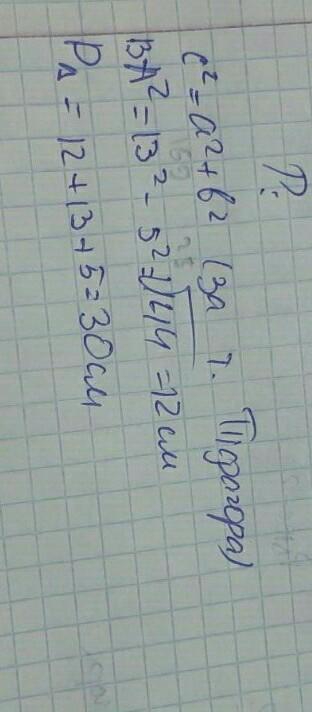 Р:
c² = a² + b² (за т. Піфагора)
BA² = 13² - 5² = √144 = 12 см
P∆ = 12 + 13 + 5 = 30 см